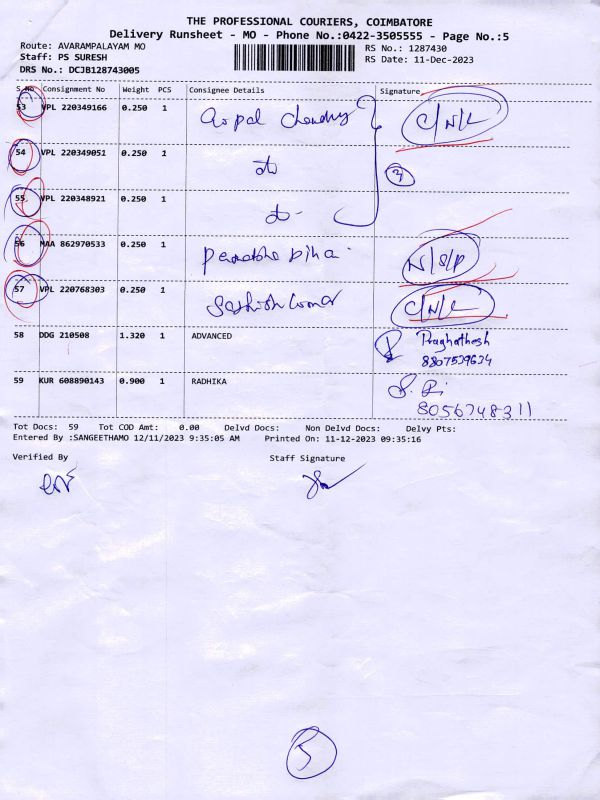 THE PROFESSIONAL COURIERS, COIMBATORE
Delivery Runsheet - MO - Phone No.:0422-3505555 - Page No.:5
Route: AVARAMPALAYAM MO
RS No.: 1287430
Staff: PS SURESH
RS Date: 11-Dec-2023
DRS No.: DCJB128743005
S.No Consignment No Weight PCS Consignee Details Signature
53 VPL 220349166 0.250 1 C/N/L
54 VPL 220349051 0.250 1 do 3
55 VPL 220348921 0.250 1 do
56 MAA 862970533 0.250 1 N/S/P
57 VPL 220768303 0.250 1 Sathish kumar C/N/L
58 DDG 210508 1.320 1 ADVANCED Praghathesh
8807539634
59 KUR 608890143 0.900 1 RADHIKA
8056748311
Tot Docs: 59 Tot COD Amt: 0.00 Delvd Docs: Non Delvd Docs: Delvy Pts:
Entered By :SANGEETHAMO 12/11/2023 9:35:05 AM Printed On: 11-12-2023 09:35:16
Verified By Staff Signature
5